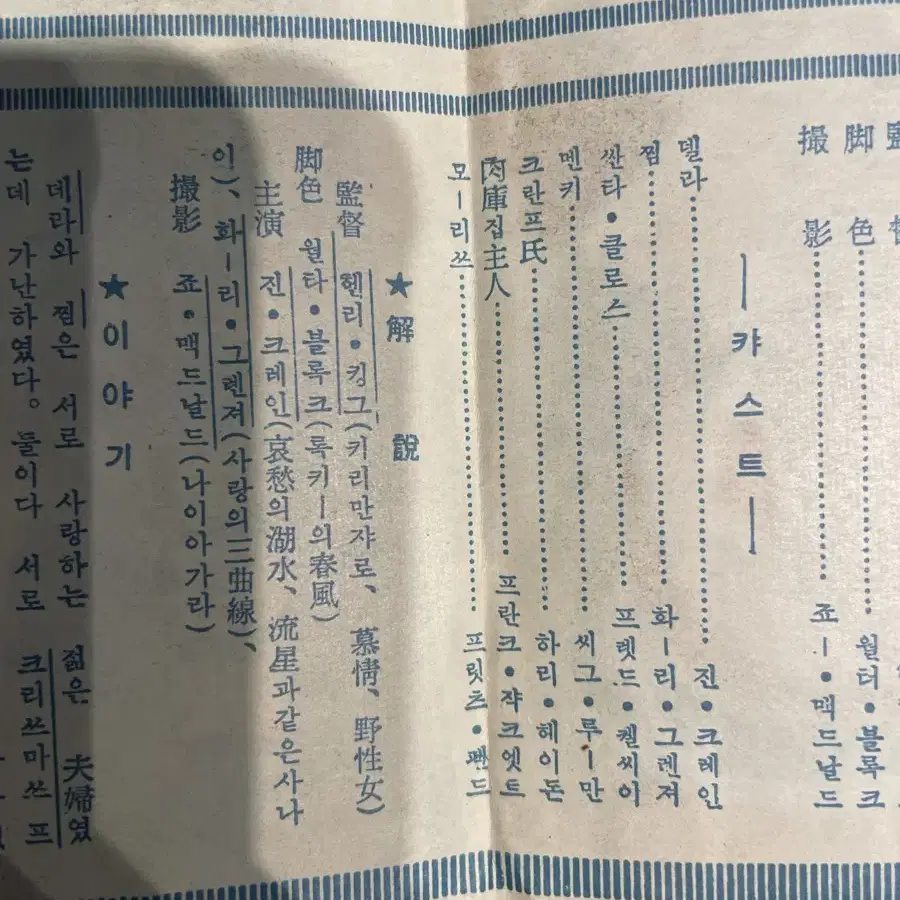 監督
脚色……월터•블록크
撮影……죠ー•맥드날드
―캬스트―
델라……진•크레인
찜……화ー리•그렌져
싼타•클로스……프렛드•켈씨이
멘키……씨그•루ー만
크란프氏……하리•헤이돈
肉庫집主人……프란크•쟈크엣트
모ー리쓰……프릿츠•팬드
★解説
監督 헨리•킹그(키리만쟈로、慕情、野性女)
脚色 월타•블록크(록키ー의春風)
主演 진•크레인(哀愁의湖水、流星과같은사나
이)、화ー리•그렌져(사랑의三曲線、
撮影 죠•맥드날드(나이아가라)
★이야기
데라와 찜은 서로 사랑하는 젊은 夫婦였
는데 가난하였다。둘이다 서로 크리쓰마쓰 프